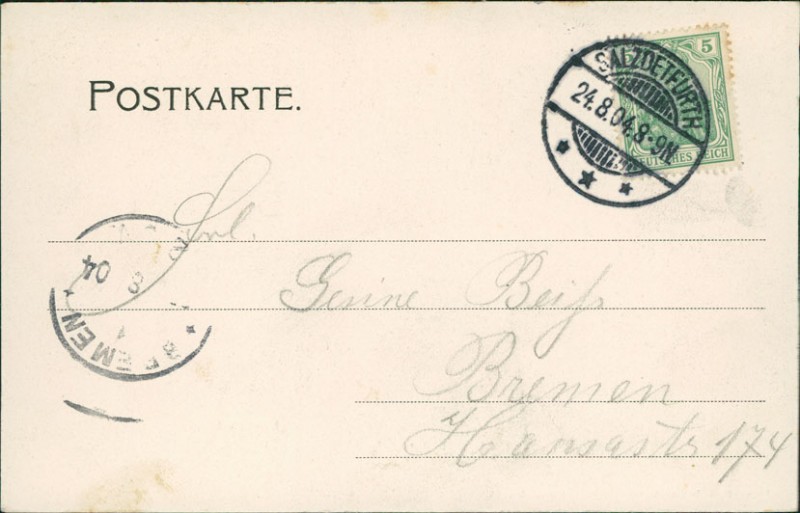 POSTKARTE.
5
DEUTSCHES REICH
SALZDETFURTH
24.8.04.8-9N.
Frl.
Gesine Beiß
Bremen
Hansastr 174
BREMEN
8
04